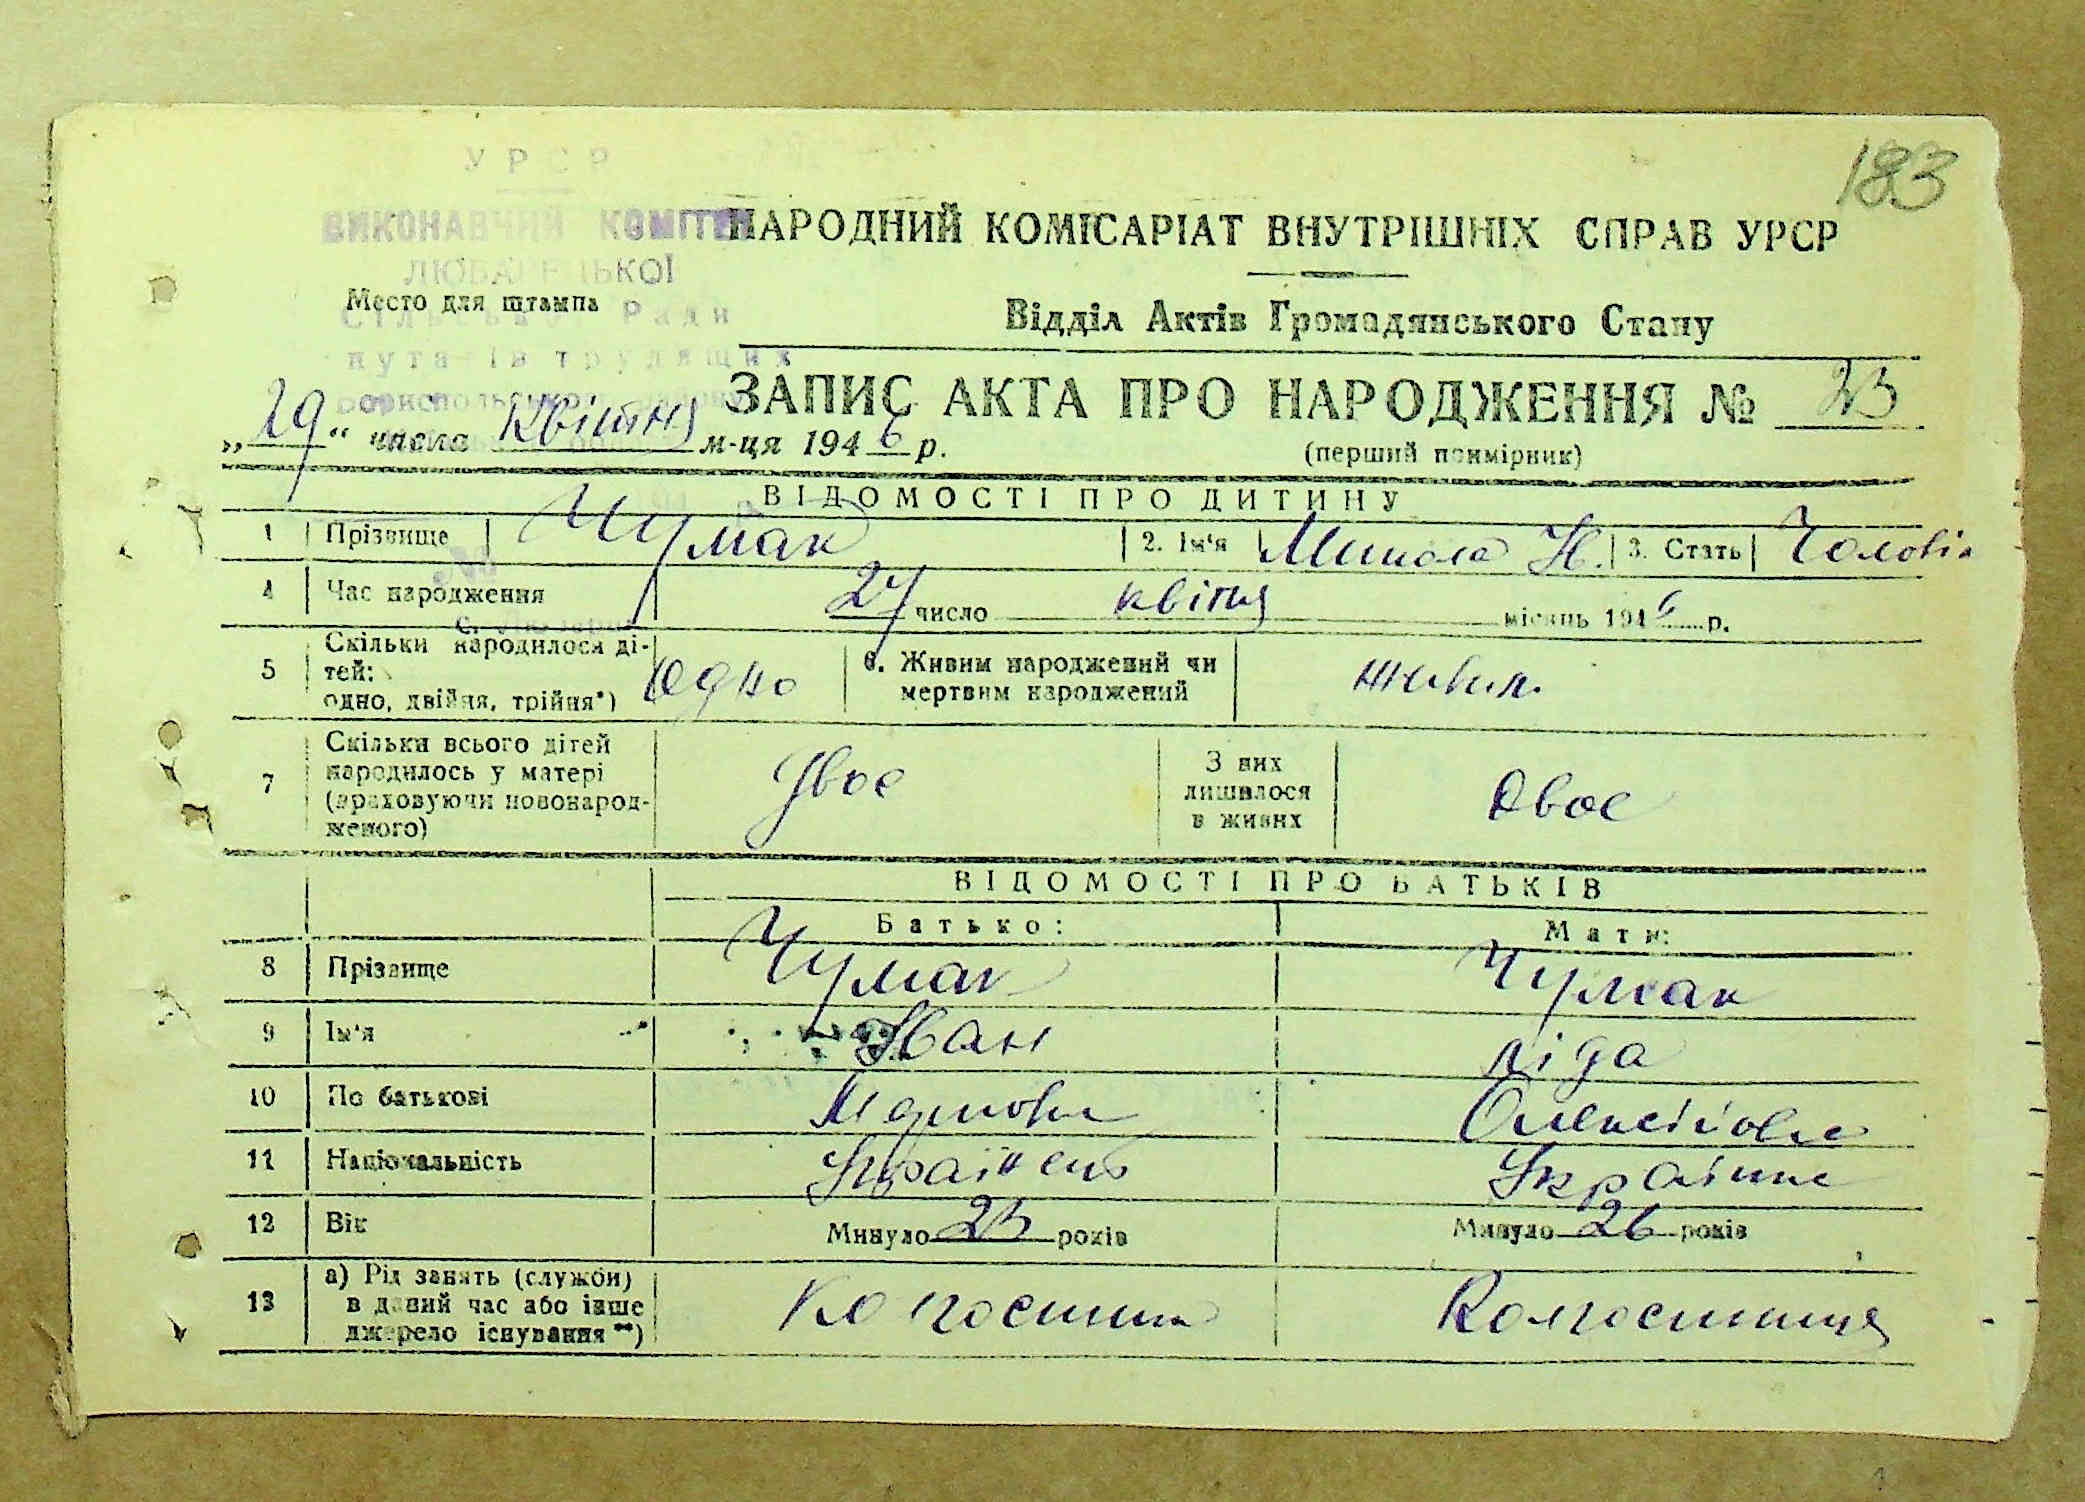 183
УРСР
ВИКОНАВЧИЙ КОМІТЕТ
НАРОДНИЙ КОМІСАРІАТ ВНУТРІШНІХ СПРАВ УРСР
Место для штампа
Ради
трудящих
Відділ Актів Громадянського Стану
ЗАПИС АКТА ПРО НАРОДЖЕННЯ № 23
„29“ числа Квітня м-ця 1946 р.
(перший примірник)
ВІДОМОСТІ ПРО ДИТИНУ
1 Прізвище Чумак 2. Ім'я Микола 3. Стать Чоловіч
4 Час народження 27 число квітня місяць 1946 р.
5 Скільки народилося ді-
тей:
одно, двійня, трійня*) Одно
6. Живим народжений чи
мертвим народжений живим
7 Скільки всього дітей
народилось у матері
(враховуючи новонарод-
женого) Двоє
З них
лишилося
в живих Двоє
ВІДОМОСТІ ПРО БАТЬКІВ
Батько: Мати:
8 Прізвище Чумак Чумак
9 Ім'я Іван Ліда
10 По батькові Олексіївна
11 Національність Українець Українка
12 Вік Минуло 23 років Минуло 26 років
13 а) Рід занять (служби)
в даний час або інше
джерело існування**) Колгоспник Колгоспниця